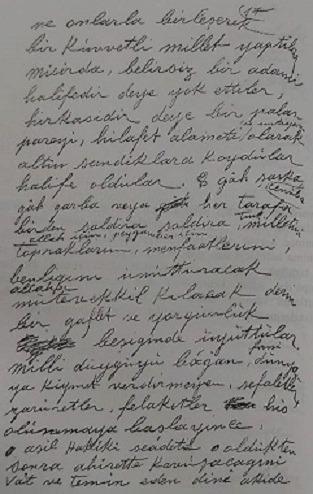 ne onlarla birleşerek
bir kuvvetli millet yaptılar
Mısırda, belirsiz bir adamı
halifedir deye yok ettiler,
hırkasıdır deye bir palas
paresi, hilafet alameti olarak
altın sandıklara koydular
halife oldular. Gâh şarka
gâh garba veya her tarafa
birden saldıra saldıra, milletini
Allah için, peygamber için
topraklarını, menfaatlerini,
benliğini unutturacak
Allahla
mütevekkil kılacak derin
bir gaflet ve yorgunluk
beşiğinde uyuttular
milli duyguyu boğan, fani dünya
ya kıymet verdirmeyen, sefaletler
zaruretler, felaketler his
olunmaya başlayınca,
o asıl Hakiki seadete öldükten
sonra ahirette kavuşacağını
Vait ve temin eden dini akide